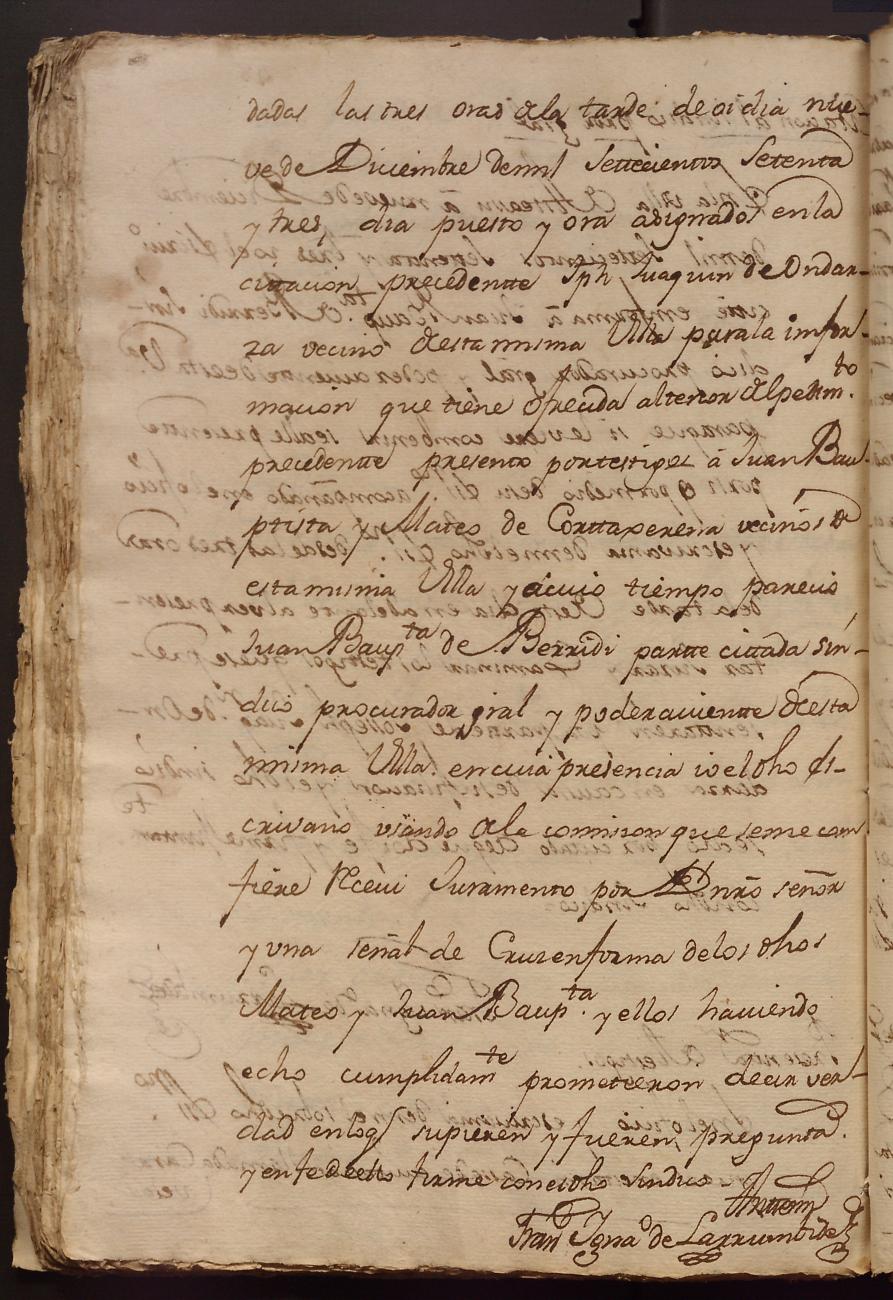 dadas las tres oras de la tarde de oi dia nue-
ve de Diciembre de mil Settecientos Setenta
y tres, dia puesto y ora asignados en la
cittacion precedentte Jph Juaquin de Ondar-
za vecino de esta misma Villa para la infor-
macion que tiene ofrecida al tenor del pedim.to
precedentte presento por testigos â Juan Bau-
ptista y Matheo de Gorttaxerena vecinos de
esta misma Villa y â cuio tiempo parecio
Juan Baup.ta de Berridi partte cittada sin-
dico procurador gral y poderauientte de esta
misma Villa. en cuia presencia io el dho es-
criuano vsando de la comision que se me con
fiere Receui Juramento por Ds nrô señor
y vna señal de Cruz en forma de los dhos
Matheo y Juan Baup.ta y ellos hauiendo
echo cumplidam.te prometieron decir ver-
dad en lo q supieren y fueren pregunta.
y en fe de ello firme con el dho sindico
Antemi
Fran.co Igna.o de Larrumbide